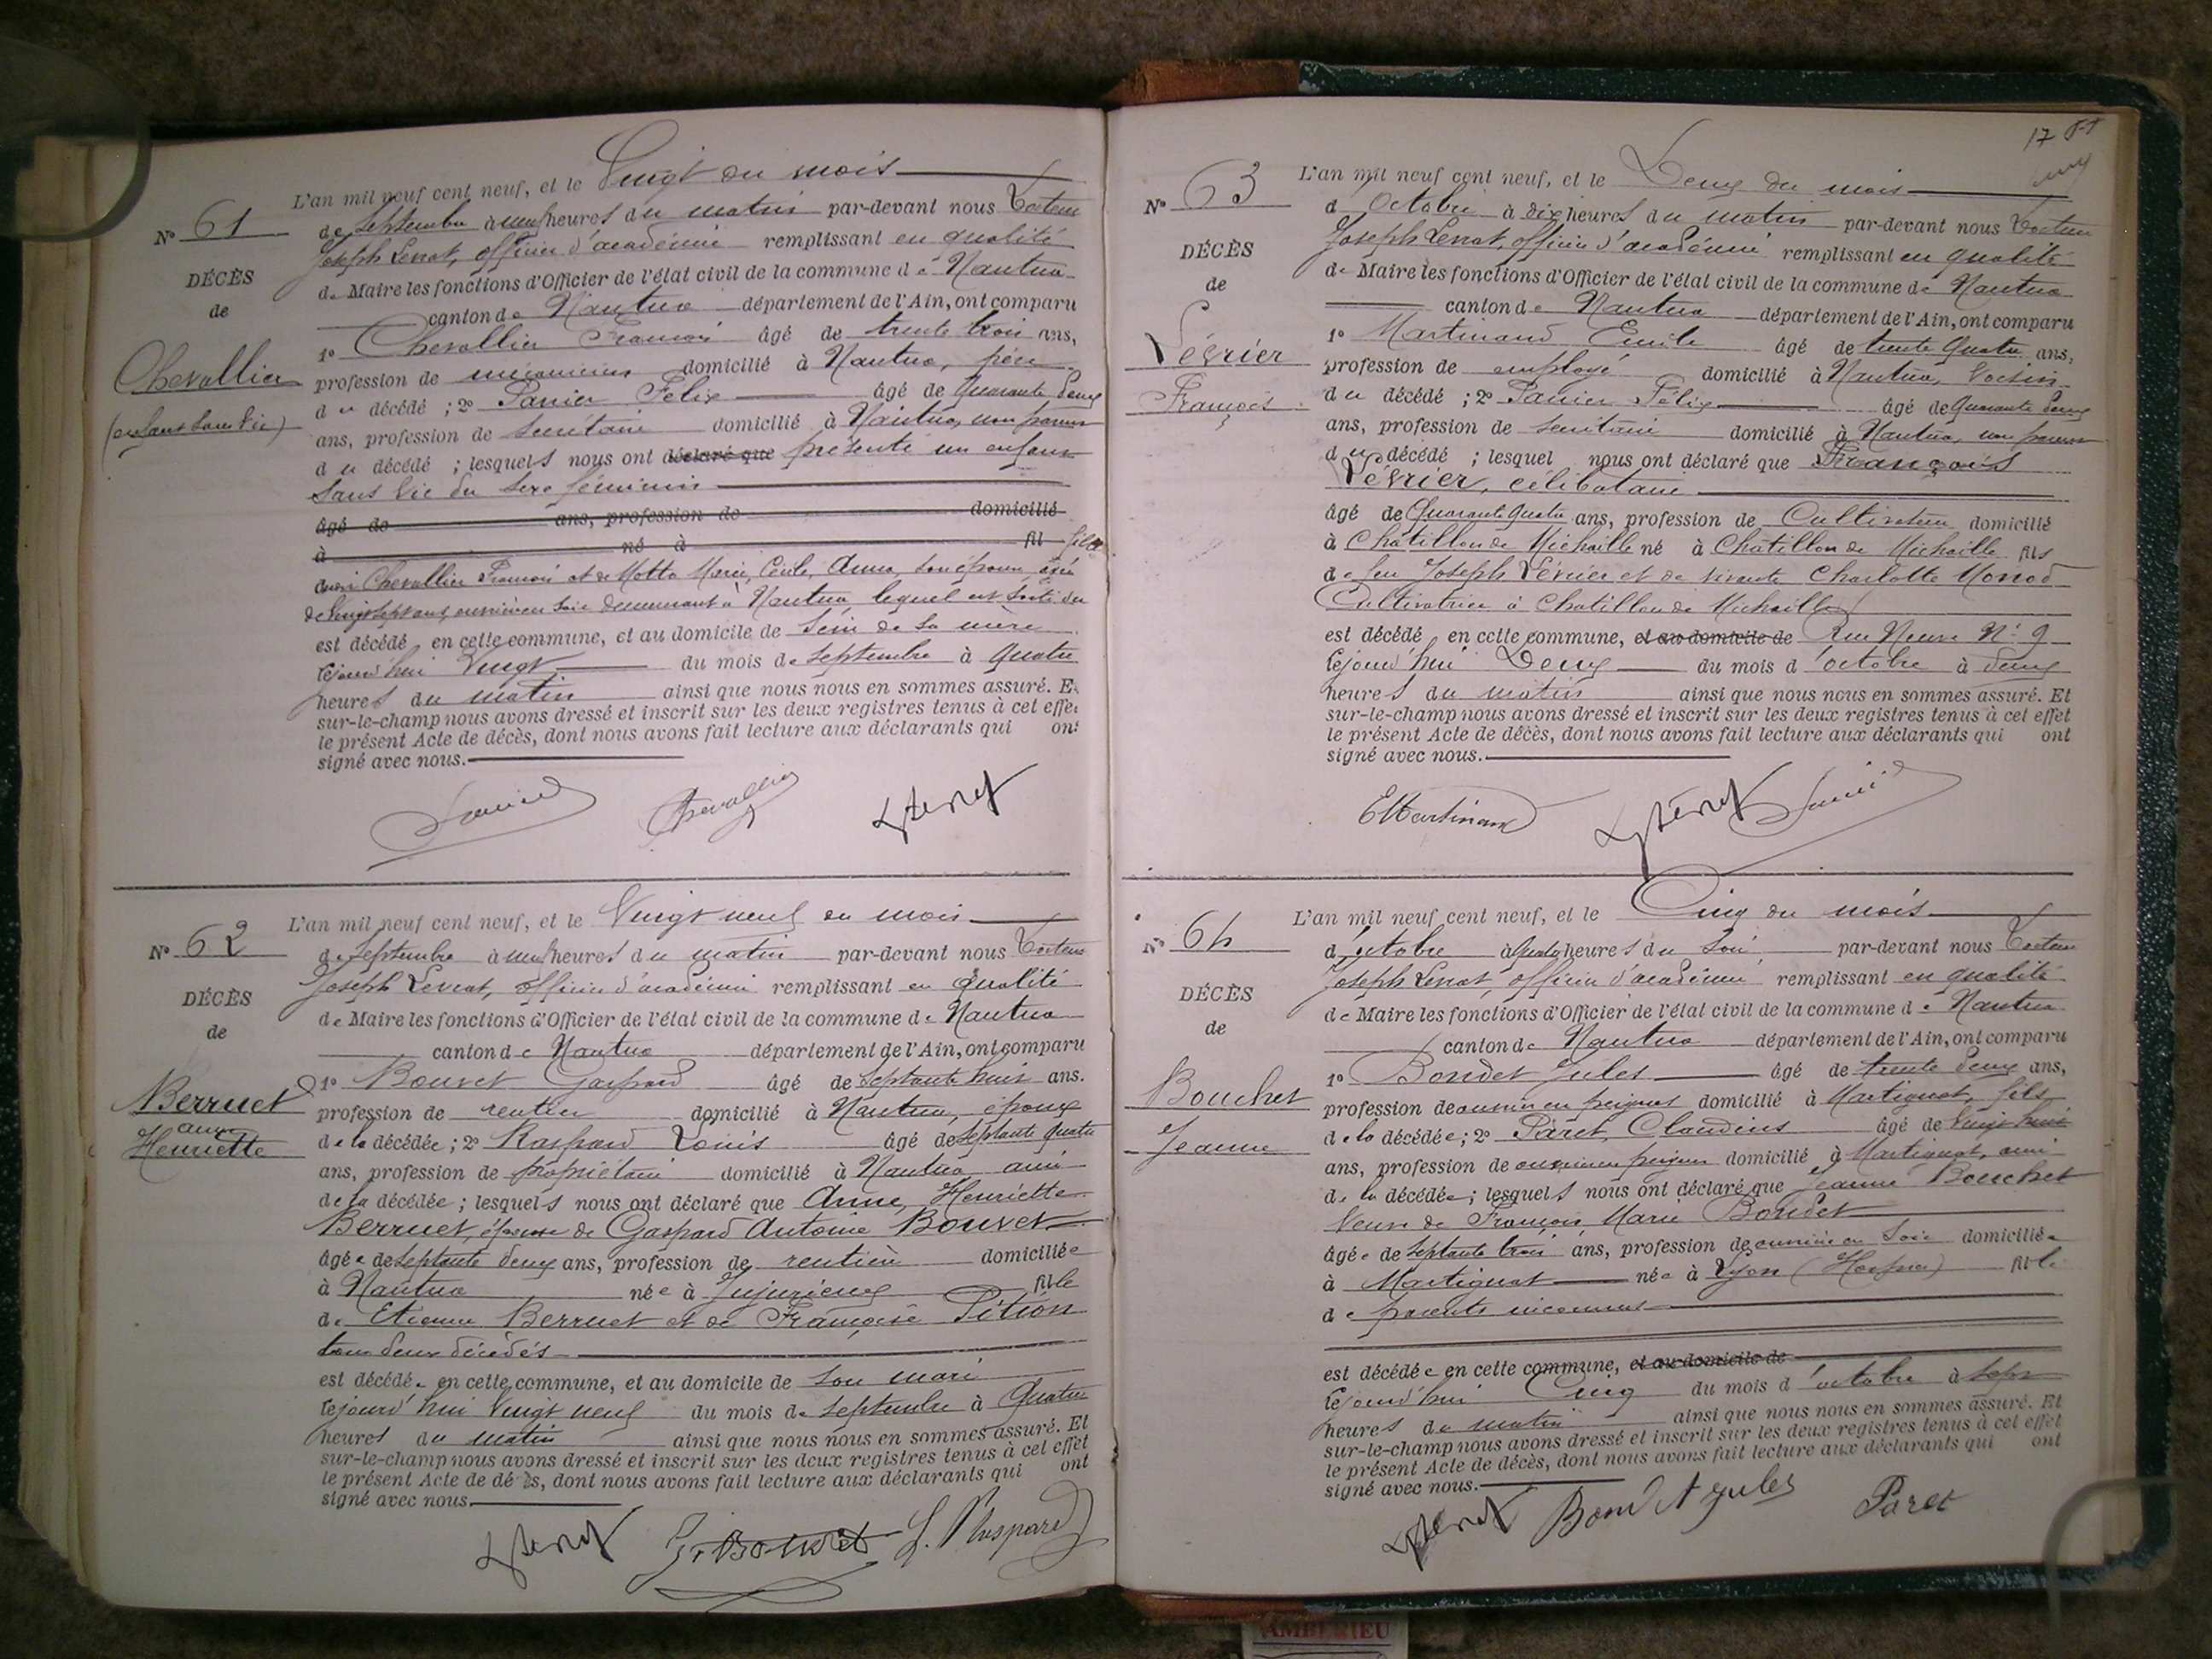 L'an mil neuf cent neuf, et le Vingt du mois
de Septembre à neuf heures du matin par-devant nous Docteur
Joseph Levrat, officier d'académie remplissant en qualité
de Maire les fonctions d'Officier de l'état civil de la commune de Nantua
canton de Nantua département de l'Ain, ont comparu
1º Chevallier François âgé de trente trois ans,
profession de mécanicien domicilié à Nantua, père
du décédé ; 2º Panier Félix âgé de Quarante deux
ans, profession de Secrétaire domicilié à Nantua, non parent
du décédé ; lesquels nous ont déclaré que présenté un enfant
sans vie du sexe féminin
âgé de ans, profession de domicilié
à né à fil fille
Chevallier François et de Motto Marie, Cécile, Anna, son épouse âgée
de Vingt sept ans, ouvrière en soie demeurant à Nantua lequel est sorti du
est décédé en cette commune, et au domicile de sein de sa mère
cejourd'hui Vingt du mois de Septembre à quatre
heures du matin ainsi que nous nous en sommes assuré. Et
sur-le-champ nous avons dressé et inscrit sur les deux registres tenus à cet effet
le présent Acte de décès, dont nous avons fait lecture aux déclarants qui ont
signé avec nous.
Nº 61
DÉCÈS
de
Chevallier
(enfant sans vie)
Panier Chevallier Levrat
L'an mil neuf cent neuf, et le Vingt neuf du mois
de Septembre à neuf heures du matin par-devant nous Docteur
Joseph Levrat, officier d'académie remplissant en qualité
de Maire les fonctions d'Officier de l'état civil de la commune de Nantua
canton de Nantua département de l'Ain, ont comparu
1º Bouvet Gaspard âgé de Septante huit ans.
profession de rentier domicilié à Nantua, époux
de la décédée ; 2º Raspard Louis âgé de Septante quatre
ans, profession de propriétaire domicilié à Nantua ami
de la décédée ; lesquels nous ont déclaré que Anne, Henriette
Berruet, épouse de Gaspard Antoine Bouvet
âgée de Septante deux ans, profession de rentière domiciliée
à Nantua née à Jujurieux fille
de Etienne Berruet et de Françoise Pition
tous deux décédés
est décédée en cette commune, et au domicile de son mari
cejourd'hui Vingt neuf du mois de Septembre à Quatre
heures du matin ainsi que nous nous en sommes assuré. Et
sur-le-champ nous avons dressé et inscrit sur les deux registres tenus à cet effet
le présent Acte de décès, dont nous avons fait lecture aux déclarants qui ont
signé avec nous.
Nº 62
DÉCÈS
de
Berruet
Anne
Henriette
Levrat G. Bouvet L. Raspard
17
L'an mil neuf cent neuf, et le Deux du mois
d'Octobre à dix heures du matin par-devant nous Docteur
Joseph Levrat, officier d'académie remplissant en qualité
de Maire les fonctions d'Officier de l'état civil de la commune de Nantua
canton de Nantua département de l'Ain, ont comparu
1º Martinand Emile âgé de trente Quatre ans,
profession de employé domicilié à Nantua, voisin
du décédé ; 2º Panier Félix âgé de Quarante deux
ans, profession de secrétaire domicilié à Nantua, non parent
du décédé ; lesquel nous ont déclaré que François
Lévrier, célibataire
âgé de Quarante Quatre ans, profession de Cultivateur domicilié
à Châtillon de Michaille né à Châtillon de Michaille fils
de feu Joseph Lévrier et de vivante Charlotte Monod
Cultivatrice à Chatillon de Michaille
est décédé en cette commune, et au domicile de Rue Neuve Nº 9
cejourd'hui Deux du mois d'octobre à deux
heures du matin ainsi que nous nous en sommes assuré. Et
sur-le-champ nous avons dressé et inscrit sur les deux registres tenus à cet effet
le présent Acte de décès, dont nous avons fait lecture aux déclarants qui ont
signé avec nous.
Nº 63
DÉCÈS
de
Lévrier
François
E Martinand Levrat Panier
L'an mil neuf cent neuf, et le Cinq du mois
d'octobre à quatre heures du soir par-devant nous Docteur
Joseph Levrat, officier d'académie remplissant en qualité
de Maire les fonctions d'Officier de l'état civil de la commune de Nantua
canton de Nantua département de l'Ain, ont comparu
1º Boudet Jules âgé de trente deux ans,
profession de ouvrier en peignes domicilié à Martignat, fils
de la décédée ; 2º Paret, Claudius âgé de Vingt huit
ans, profession de ouvrier en peignes domicilié à Martignat, ami
de la décédée ; lesquels nous ont déclaré que Jeanne Bouchet
Veuve de François Marie Boudet
âgée de Septante trois ans, profession de ouvrière en soie domiciliée
à Martignat née à Lyon (Hospice) fille
de parents inconnus
est décédée en cette commune, et au domicile de
cejourd'hui Cinq du mois d'octobre à sept
heures du matin ainsi que nous nous en sommes assuré. Et
sur-le-champ nous avons dressé et inscrit sur les deux registres tenus à cet effet
le présent Acte de décès, dont nous avons fait lecture aux déclarants qui ont
signé avec nous.
Nº 64
DÉCÈS
de
Bouchet
Jeanne
Levrat Boudet Jules Paret
AMBERIEU